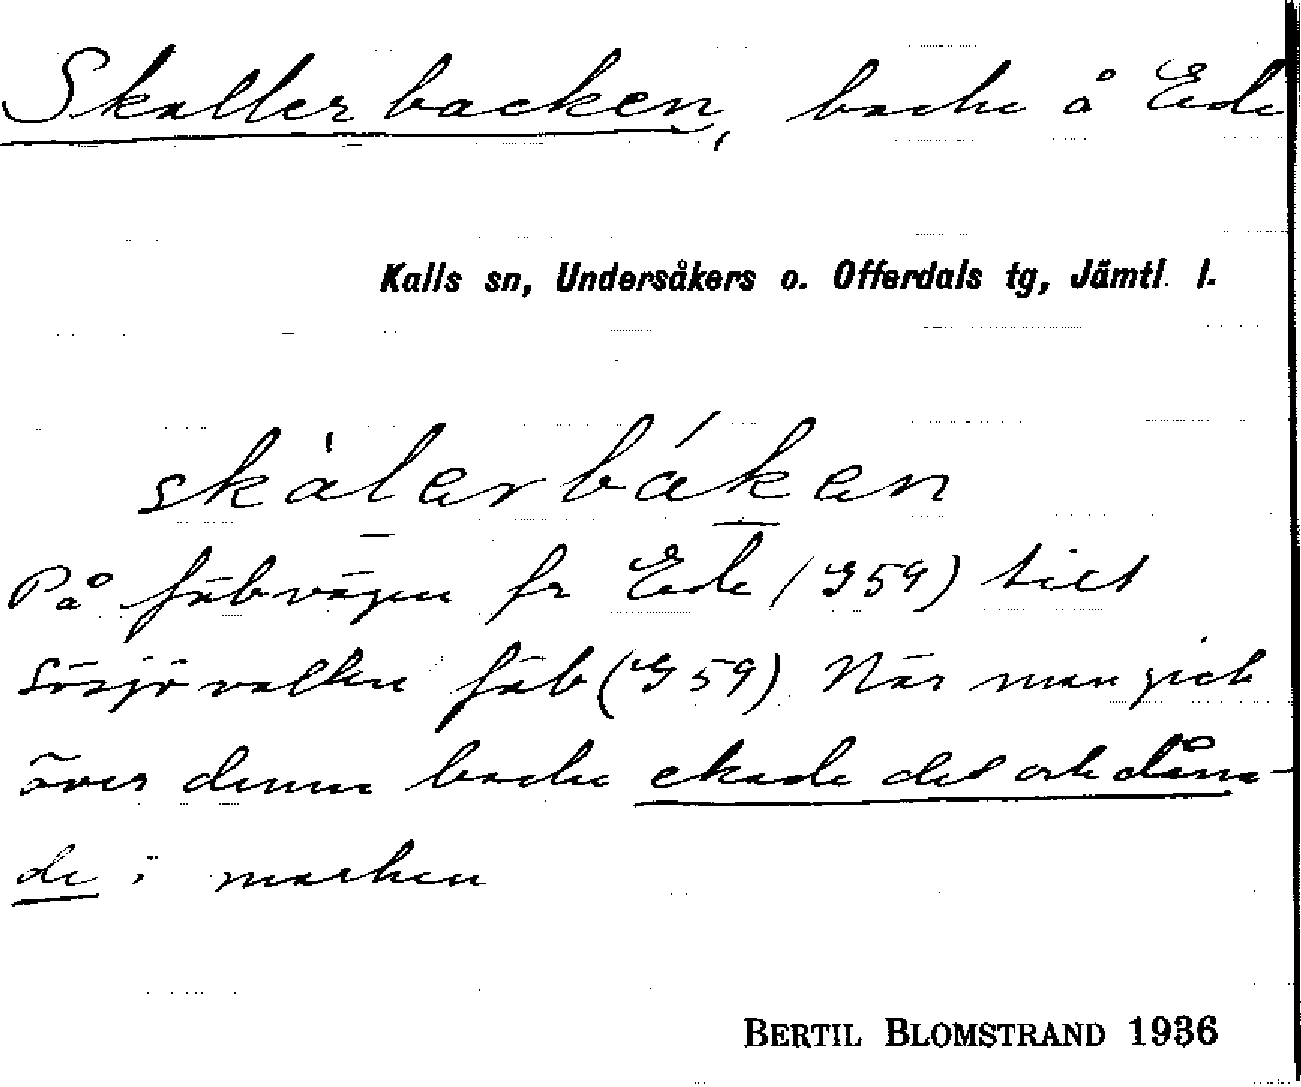 Skallerbacken, backe å Ede
Kalls sn, Undersåkers o. Offerdals tg, Jämtl. l.
skàlerbáken
På fäbvägen fr Ede (G59) till
Sösjövallen fäb (G59). När man gick
över denna backe ekade det och dåna-
de i marken
BERTIL BLOMSTRAND 1936